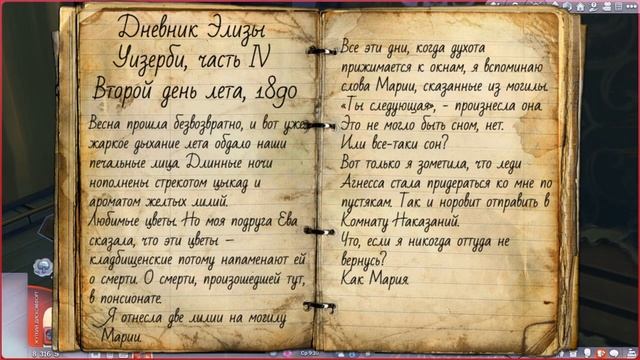 Дневник Элизы
Уизерби, часть IV
Второй день лета, 1890
Весна прошла безвозвратно, и вот уже
жаркое дыхание лета обдало наши
печальные лица. Длинные ночи
нополнены стрекотом цыкад и
ароматом желтых лилий.
Любимые цветы. Но моя подруга Ева
сказала, что эти цветы –
кладбищенские потому напаменают ей
о смерти. О смерти, произошедшей тут,
в понсионате.
Я отнесла две лилии на могилу
Марии.
Все эти дни, когда духота
прижимается к окнам, я вспоминаю
слова Марии, сказанные из могилы.
«Ты следующая», - произнесла она.
Это не могло быть сном, нет.
Или все-таки сон?
Вот только я зометила, что леди
Агнесса стала придераться ко мне по
пустякам. Так и норовит отправить в
Комнату Наказаний.
Что, если я никогда оттуда не
вернусь?
Как Мария.
8 316 §
Ср 9:30